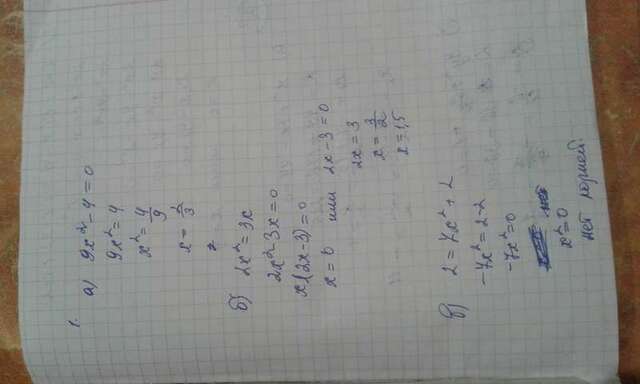 1.
а) 9x² - 4 = 0
9x² = 4
x² = 4/9
x = 2/3
б) 2x² = 3x
2x² - 3x = 0
x(2x - 3) = 0
x = 0 или 2x - 3 = 0
2x = 3
x = 3/2
x = 1,5
в) 2 = 7x² + 2
-7x² = 2 - 2
-7x² = 0
x² = 0
нет корней.